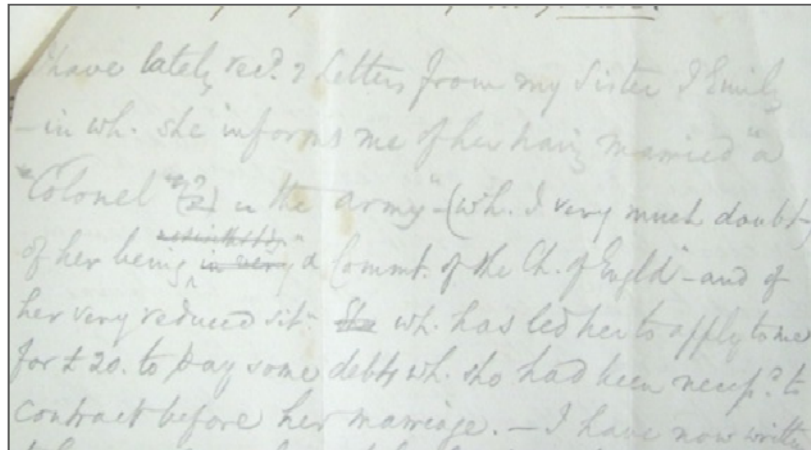 I have lately recd. 2 Letters from my Sister J Emily
- in wh. she informs me of her havg married "a
"Colonel" (?) in the army" - (wh. I very much doubt,)
of her being a Commt. of the Ch. of Engld" - and of
her very reduced sitn. She wh. has led her to apply to me
for £20. to pay some debts wh. she had been necessd. to
contract before her marriage. - I have now written